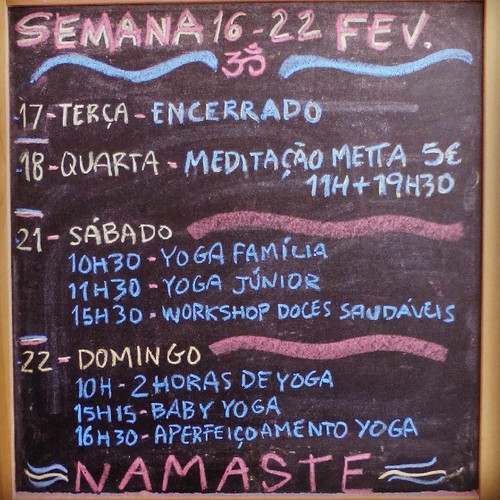 SEMANA 16-22 FEV.
ॐ
17-TERÇA-ENCERRADO
18-QUARTA-MEDITAÇÃO METTA 5€
11H+19H30
21-SÁBADO
10H30-YOGA FAMÍLIA
11H30-YOGA JÚNIOR
15H30-WORKSHOP DOCES SAUDÁVEIS
22-DOMINGO
10H-2 HORAS DE YOGA
15H15-BABY YOGA
16H30-APERFEIÇOAMENTO YOGA
NAMASTE